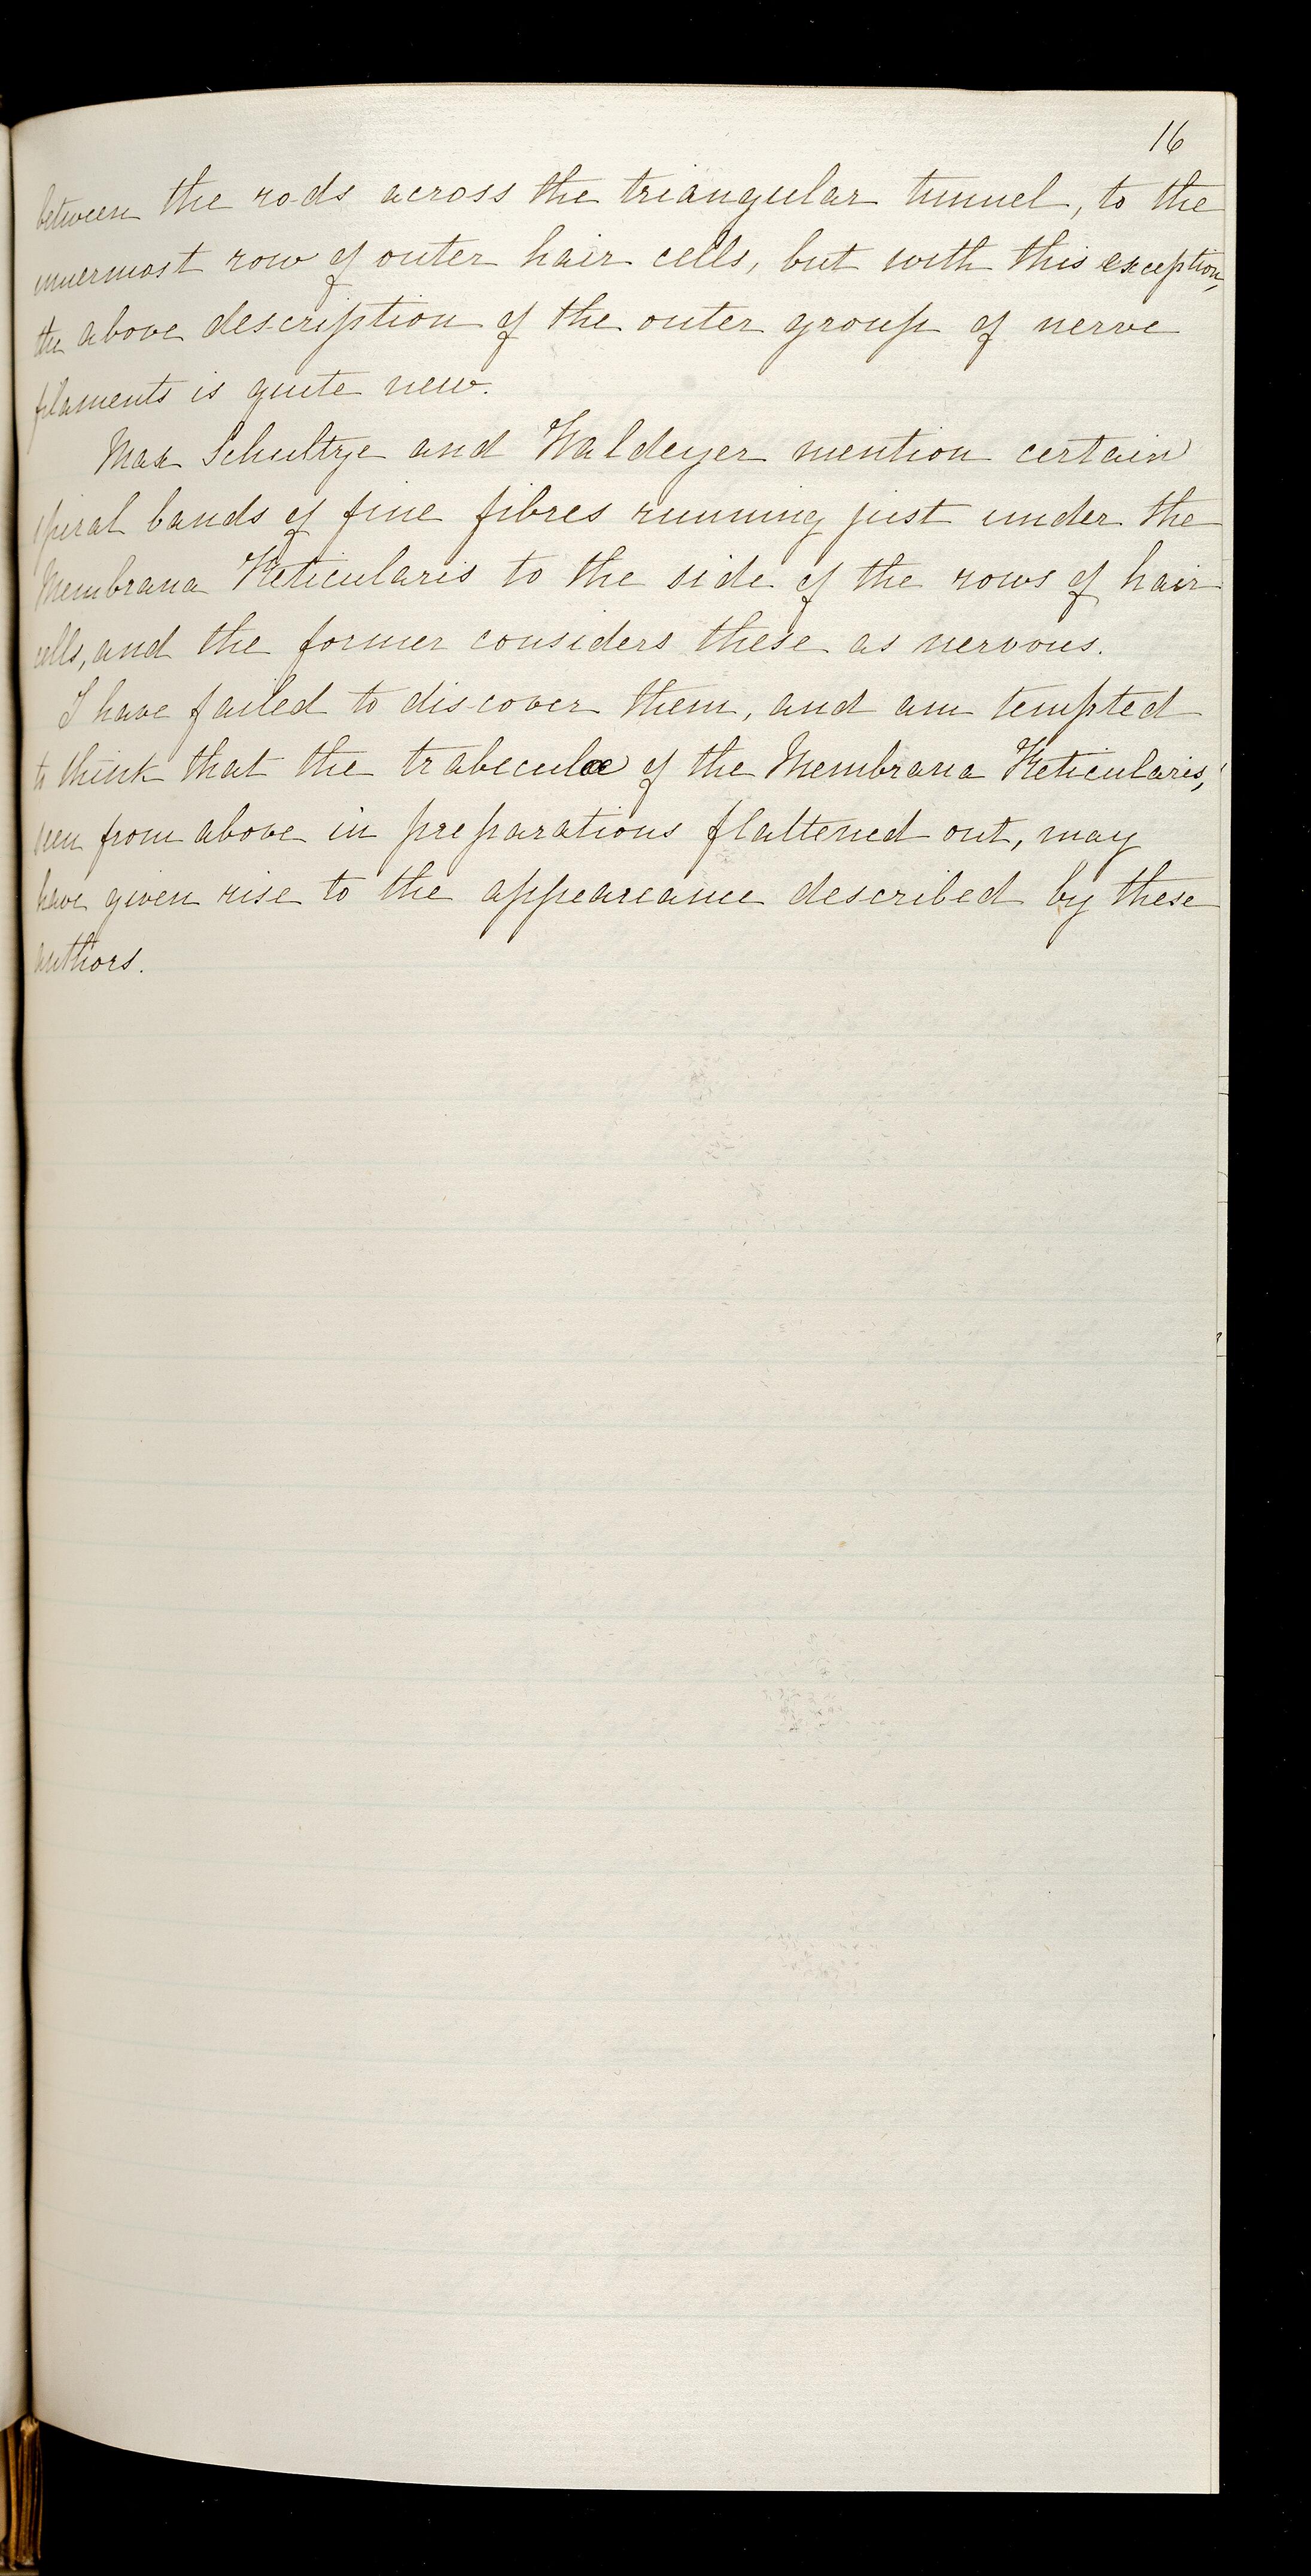 16
between the rods across the triangular tunnel, to the
innermost row of outer hair cells, but with this exception,
the above description of the outer group of nerve
filaments is quite new.
Max Schultze and Waldeyer mention certain
spiral bands of fine fibres running just under the
Membrana Reticularis to the side of the rows of hair
cells, and the former considers these as nervous.
I have failed to discover them, and am tempted
to think that the trabeculæ of the Membrana Reticularis,
seen from above in preparations flattened out, may
have given rise to the appearance described by these
authors.